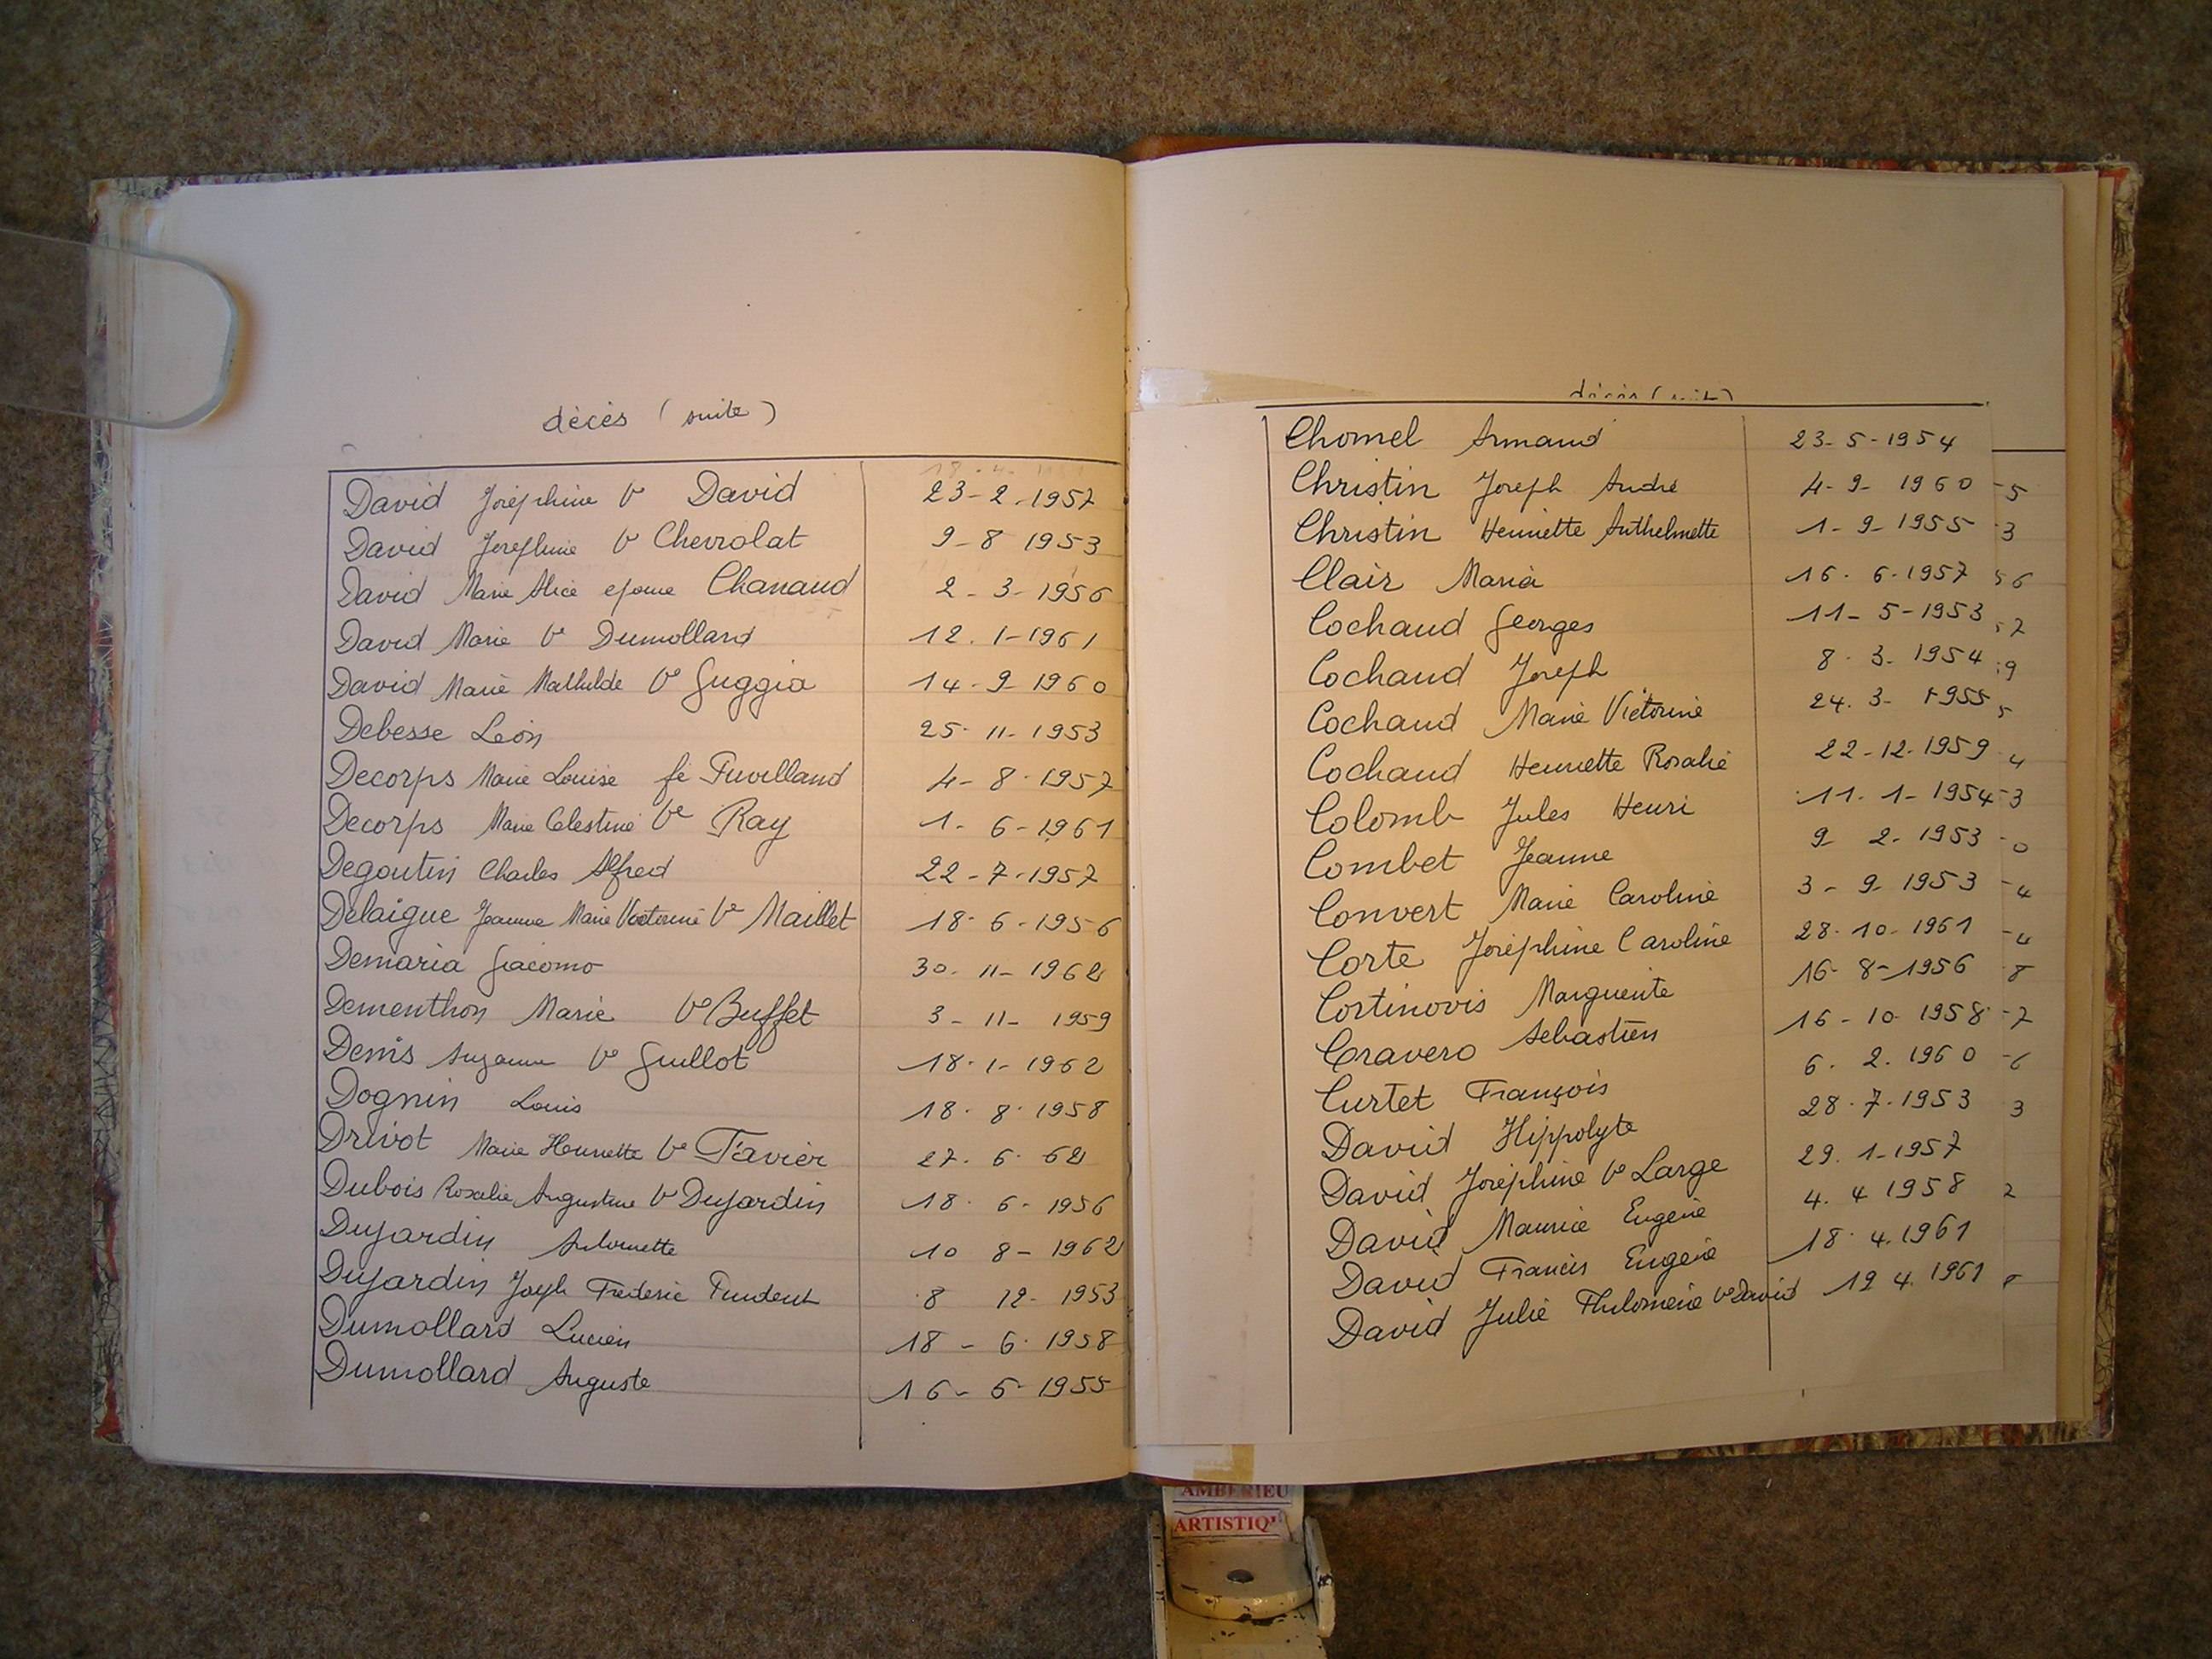 décès (suite)
David Joséphine Ve David 23-2-1957
David Josephine Ve Chevrolat 9-8 1953
David Marie Alice epouse Chanaud 2-3-1956
David Marie Ve Dumollard 12.1-1961
David Marie Mathilde Ve Guggia 14-9-1960
Debesse Léon 25-11-1953
Decorps Marie Louise fe Fuvilland 4-8-1957
Decorps Marie Celestine Ve Ray 1-6-1961
Degoutin Charles Alfred 22-7-1957
Delaigue Jeanne Marie Victorine Ve Maillet 18-6-1956
Demaria Giacomo 30-11-1962
Dementhon Marie Ve Buffet 3-11-1959
Denis Suzanne Ve Guillot 18-1-1962
Dognin Louis 18.8.1958
Drivot Marie Henriette Ve Favier 27.6.62
Dubois Rosalie Augustine Ve Dujardin 18.6-1956
Dujardin Antoinette 10 8-1962
Dujardin Joseph Frederic Prudent 8 12-1953
Dumollard Lucien 18-6.1958
Dumollard Auguste 16-6-1955
décès (suite)
Chomel Armand 23-5-1954
Christin Joseph André 4-9-1960 -5
Christin Henriette Anthelmette 1-9-1955 3
Clair Maria 16.6-1957 6
Cochaud Georges 11-5-1953 7
Cochaud Joseph 8.3-1954 9
Cochaud Marie Victorine 24.3-1955 5
Cochaud Henriette Rosalie 22-12-1959 4
Colomb Jules Henri 11.1-1954 -3
Combet Jeanne 9-2-1953 -0
Convert Marie Caroline 3-9-1953 -4
Corte Joséphine Caroline 28-10-1961 -4
Cortinovis Marguerite 16-8-1956 8
Cravero Sebastien 16-10-1958 -7
Curtet François 6.2.1960 -6
David Hippolyte 28.7.1953 3
David Joséphine Ve Large 29.1-1957
David Maurice Eugène 4.4 1958 2
David Francis Eugène 18.4.1961
David Julie Philomène Ve David 12 4.1961
AMBERIEU
ARTISTIQ